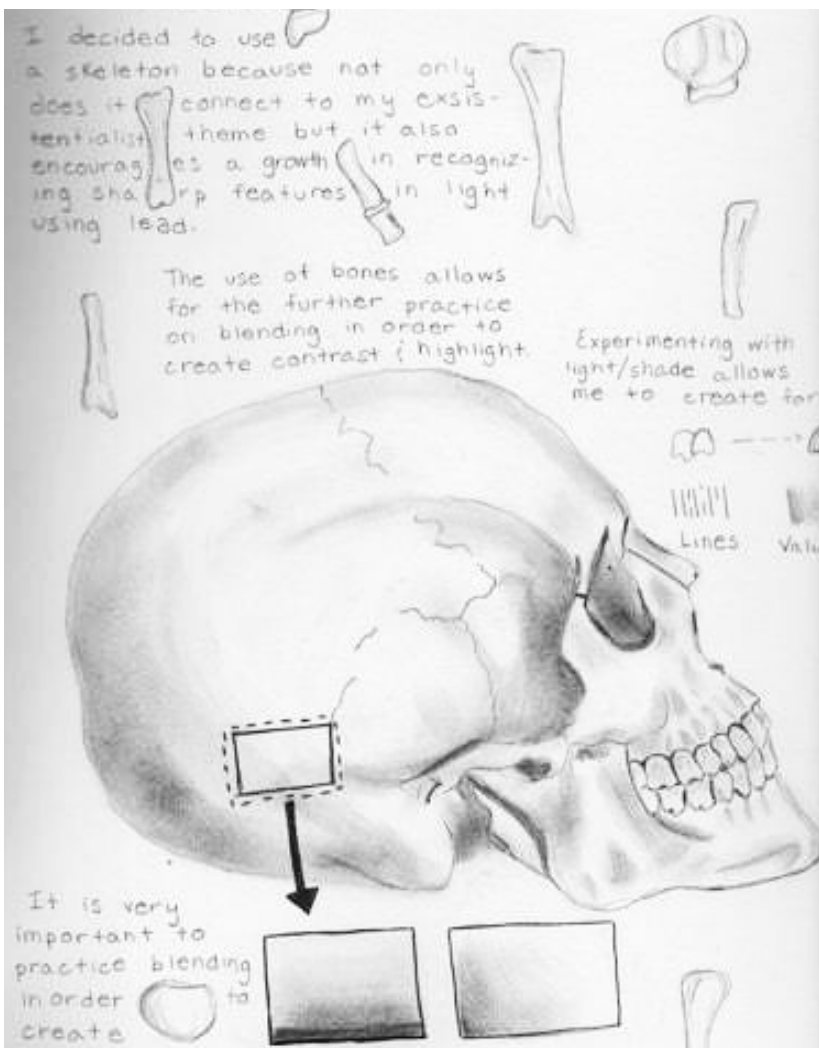 I decided to use
a skeleton because not only
does it connect to my exsis-
tentialist theme but it also
encourages a growth in recogniz-
ing sharp features in light
using lead.
The use of bones allows
for the further practice
on blending in order to
create contrast & highlight.
Experimenting with
light/shade allows
me to create for
Lines Valu
It is very
important to
practice blending
in order to
create